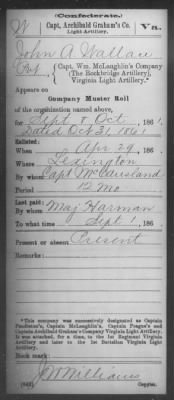 (Confederate.)
W | Capt. Archibald Graham's Co. Light Artillery. | Va.
John A Wallace
Pvt, Capt. Wm. McLaughlin's Company (The Rockbridge Artillery), Virginia Light Artillery.*
Appears on
Company Muster Roll
of the organization named above,
for Sept & Oct, 1861.
Dated Oct 31, 1861
Enlisted:
When Apr 29, 186 .
Where Lexington
By whom Capt McCausland
Period 12 Mo
Last paid:
By whom Maj Harman
To what time Sept 1, 186 .
Present or absent Present
Remarks:
*This company was successively designated as Captain
Pendleton's, Captain McLaughlin's, Captain Poague's and
Captain Archibald Graham's Company Virginia Light Artillery.
It was attached, for a time, to the 1st Regiment Virginia
Artillery and later to the 1st Battalion Virginia Light
Artillery.
Book mark:
J W Williams
(642) Copyist.